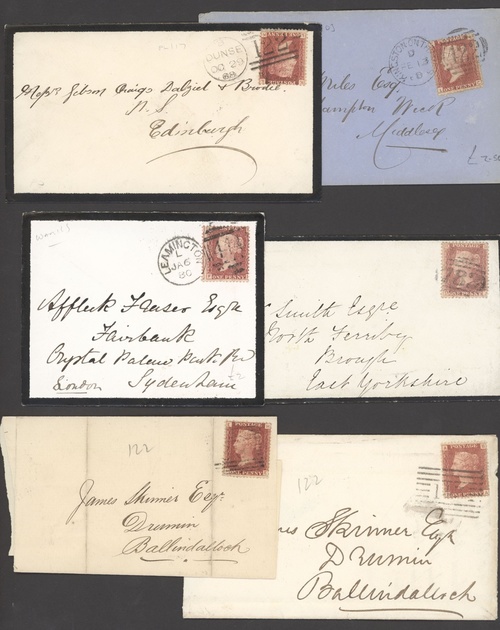 DUNSE
OC 29
68
Messrs Gibson Craigs Dalziel & Brodie.
W. S
Edinburgh
Miles Esq.
Hampton Wick
Middlesex
LEAMINGTON
L
JA 6
80
Affleck Fraser Esqre
Fairbank
Crystal Palace Park Rd
London Sydenham
Smith Esqre
North Ferriby
Brough
East Yorkshire
122
POSTAGE
James Skinner Esqr
Drumin
Ballindalloch
122
POSTAGE
ONE PENNY
Skinner Esqr
Drumin
Ballindalloch